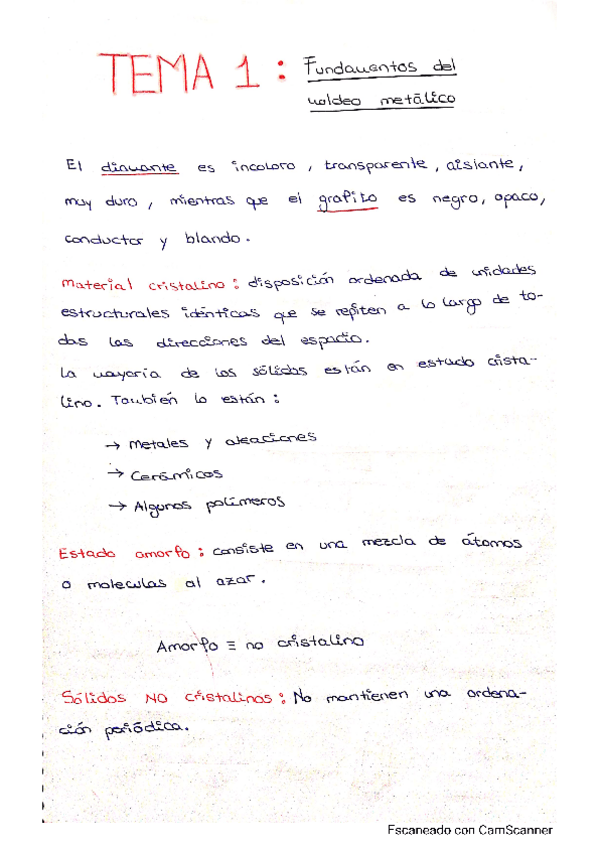 TEMA 1 : Fundamentos del
moldeo metálico
El diamante es incoloro, transparente, aislante,
muy duro, mientras que el grafito es negro, opaco,
conductor y blando.
Material cristalino: disposición ordenada de unidades
estructurales idénticas que se repiten a lo largo de to-
das las direcciones del espacio.
La mayoría de los sólidos están en estado crista-
lino. También lo están:
→ Metales y aleaciones
→ Cerámicos
→ Algunos polímeros
Estado amorfo: consiste en una mezcla de átomos
o moleculas al azar.
Amorfo ≡ no cristalino
Sólidos NO cristalinos: No mantienen una ordena-
ción periódica.
Escaneado con CamScanner